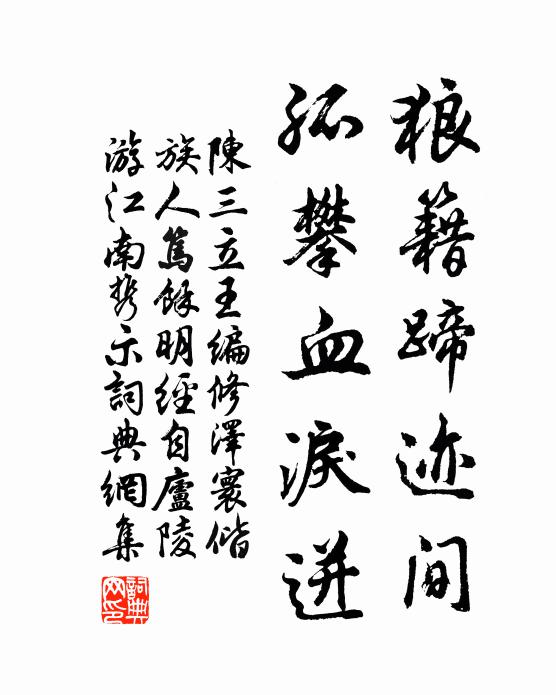 狼籍蹄迹间
孤攀血淚迸
陳三立王編修澤寰偕
族人篤餘明經自廬陵
游江南携示詞典網集
詞典網印